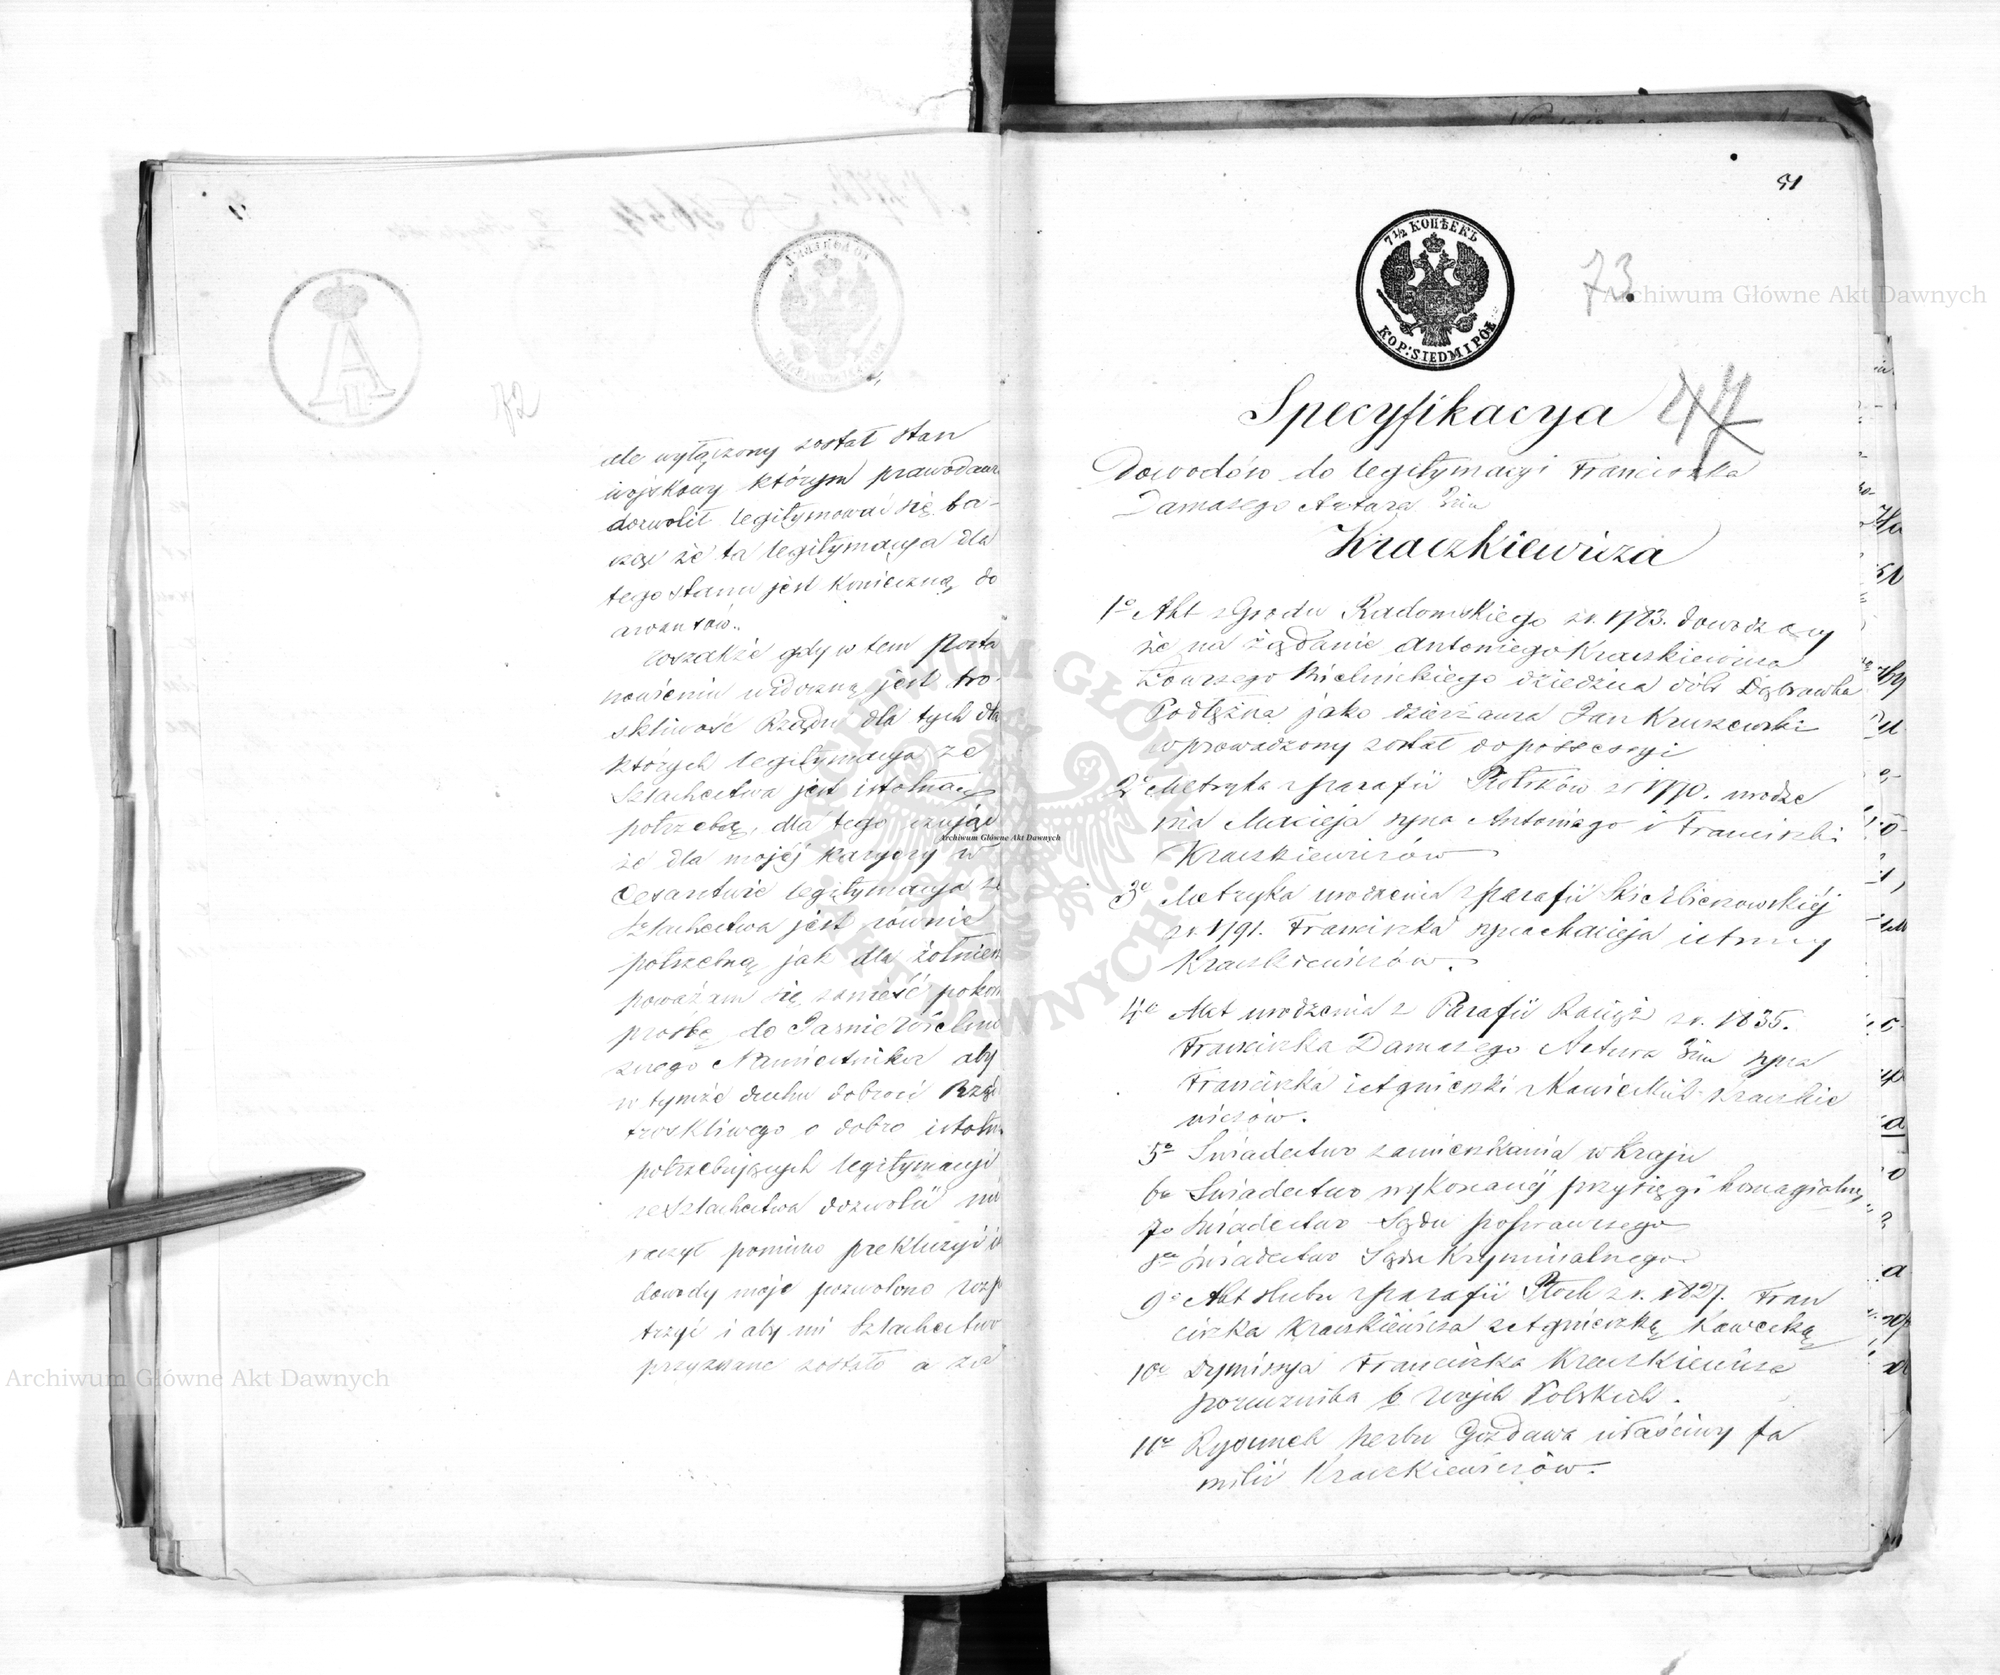 72
ale wyłączony został stan
wojskowy którym prawodawc
dozwolił legitymować się ba-
cząc że ta legitymacya dla
tego stanu jest konieczną do
awansów.
Wszakże gdy w tem posta
nowieniu widoczną jest tro-
skliwość Rządu dla tych dla
których legitymacya ze
Szlachectwa jest istotną
potrzebą, dla tego czując
że dla mojéj karyery w
Cesarstwie legitymacya ze
Szlachectwa jest równie
potrzebną jak dla żołnierz
poważam się zanieść pokor
prośbę do Jaśnie Oświeco
nego Namiestnika aby
w tymże duchu dobroci Rząd
troskliwego o dobro istotn
potrzebujących legitymacyi
ze Szlachectwa dozwolić mi
raczył pomimo prekluzyi i
dowody moje pozwolono rozp
trzyć i aby mi Szlachectwo
przyznane zostało a za
51
7½ КОПѢЕКЪ
KOP: SIEDM I PÓŁ
73.
47
Specyfikacya
Dowodów do legitymacyi Franciszka
Damazego Artura 3im
Kraczkiewicza
1o Akt z Grodu Radomskiego z r. 1783. dowodzący
że na żądanie Antoniego Kraczkiewicza
Kielińskiego dziedzica dóbr Dąbrowka
Podłężna jako dzierżawca Jan Kruszewski
wprowadzony został do possessyi
2o Metryka z parafii Piotrków z r 1770. urodze
nia Macieja syna Antoniego i Franciszki
Kraczkiewiczów
3o Metryka urodzenia z parafii Skierbieszowskiéj
z r. 1791. Franciszka syna Macieja i
Kraczkiewiczów.
4o Akt urodzenia z Parafii Raciąż z r. 1835.
Franciszka Damazego Artura 3im syna
Franciszka i Agnieszki Kraczkie
wiczów.
5o Świadectwo zamieszkania w Kraju
6o Świadectwo wykonanéj przysięgi homagialnéj
7o Świadectwo Sądu poprawczego
8o Świadectwo Sądu Kryminalnego
9o Akt ślubu z parafii Płock z r. 1827. Fran
ciszka Kraczkiewicza z Agnieszką Kawecką
10o Dymissya Franciszka Kraczkiewicza
porucznika b wojsk Polskich.
11o Rysunek herbu Gozdawa właściwy fa
milii Kraczkiewiczów.
Archiwum Główne Akt Dawnych
Archiwum Główne Akt Dawnych
Archiwum Główne Akt Dawnych
ARCHIWUM GŁÓWNE AKT DAWNYCH